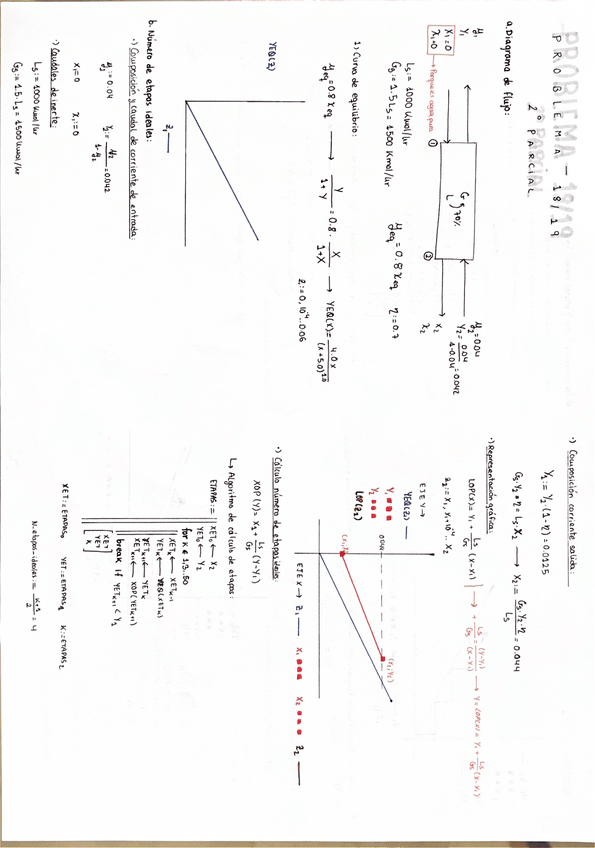 PROBLEMA - 18/19
2º PARCIAL
a. Diagrama de flujo:
y1
Y1
X1=0
x1=0
→ Porque es agua pura
①
G
L
70%
②
y2=0.04
Y2 = 0.04 / 1-0.04 = 0.042
X2
x2
Ls := 1000 Kmol/hr
Gs := 1.5 Ls = 1500 Kmol/hr
yeq = 0.8 xeq
η := 0.7
1) Curva de equilibrio:
yeq = 0.8 xeq → Y / 1+Y = 0.8 · X / 1+X → YEQ(X) = 4.0 x / (x + 5.0)
z1 := 0, 10⁻⁴ .. 0.06
YEQ(z1)
z1
b. Número de etapas ideales:
·) Composición y caudal de corriente de entrada:
y2 := 0.04
Y2 := y2 / 1-y2 = 0.042
x1 := 0
X1 := 0
·) Caudales de inerte:
Ls := 1000 Kmol/hr
Gs := 1.5 · Ls = 1500 Kmol/hr
·) Composición corriente salida:
Y1 := Y2 · (1-η) = 0.0125
Gs · Y2 · η = Ls · X2 → X2 := Gs · Y2 · η / Ls = 0.044
·) Representación gráfica:
LOP(X) = Y1 + Ls/Gs (X-X1) → + Ls/Gs = (Y-Y1) / (X-X1) → Y = LOP(X) = Y1 + Ls/Gs (X-X1)
z2 := X1, X1+10⁻⁴ .. X2
EJE Y →
YEQ(z1)
Y1
Y2
LOP(z2)
0.042
(X1,Y1)
(X2,Y2)
EJE X → z1 X1 X2 z2
·) Cálculo número de etapas ideales:
XOP(Y) := X1 + Ls/Gs (Y-Y1)
↳ Algoritmo de cálculo de etapas:
ETAPAS :=
XET0 ← X2
YET0 ← Y2
for K ∈ 1,3..50
XETK ← XETK-1
YETK ← YEQ(XETK)
YETK+1 ← YETK
XETK+1 ← XOP(YETK+1)
break if YETK+1 < Y1
XET
YET
K
XET := ETAPAS0 YET := ETAPAS1 K := ETAPAS2
N.etapas-ideales := K+1 / 2 = 4